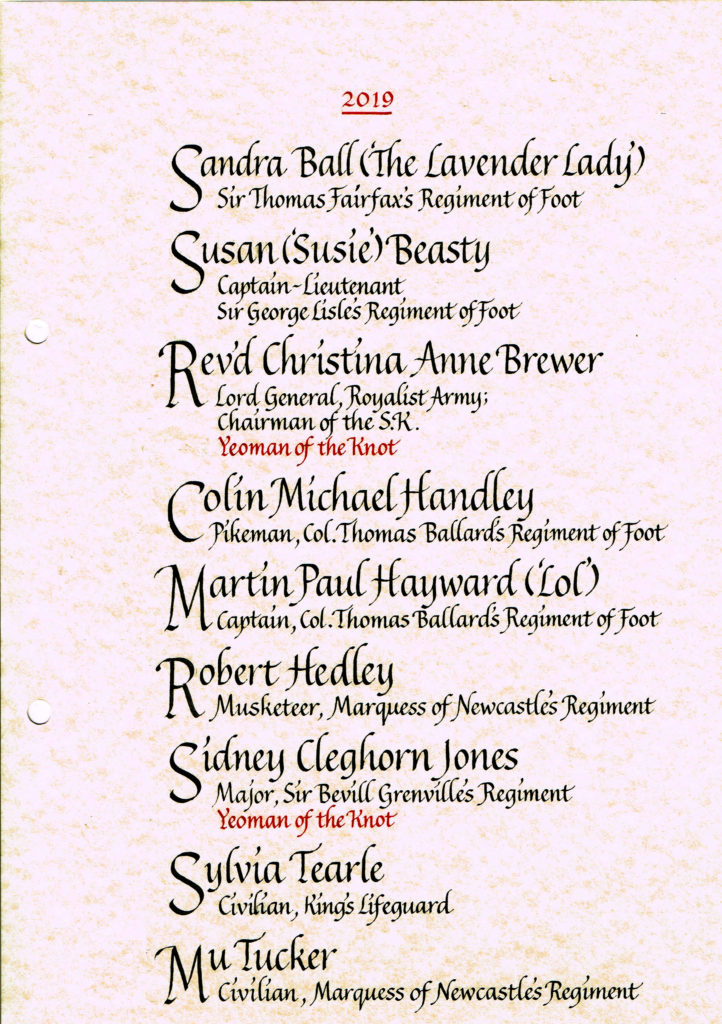 2019
Sandra Ball ('The Lavender Lady')
Sir Thomas Fairfax's Regiment of Foot
Susan ('Susie') Beasty
Captain-Lieutenant
Sir George Lisle's Regiment of Foot
Rev'd Christina Anne Brewer
Lord General, Royalist Army;
Chairman of the S.K.
Yeoman of the Knot
Colin Michael Handley
Pikeman, Col. Thomas Ballard's Regiment of Foot
Martin Paul Hayward ('Lol')
Captain, Col. Thomas Ballard's Regiment of Foot
Robert Hedley
Musketeer, Marquess of Newcastle's Regiment
Sidney Cleghorn Jones
Major, Sir Bevill Grenville's Regiment
Yeoman of the Knot
Sylvia Tearle
Civilian, King's Lifeguard
Mu Tucker
Civilian, Marquess of Newcastle's Regiment